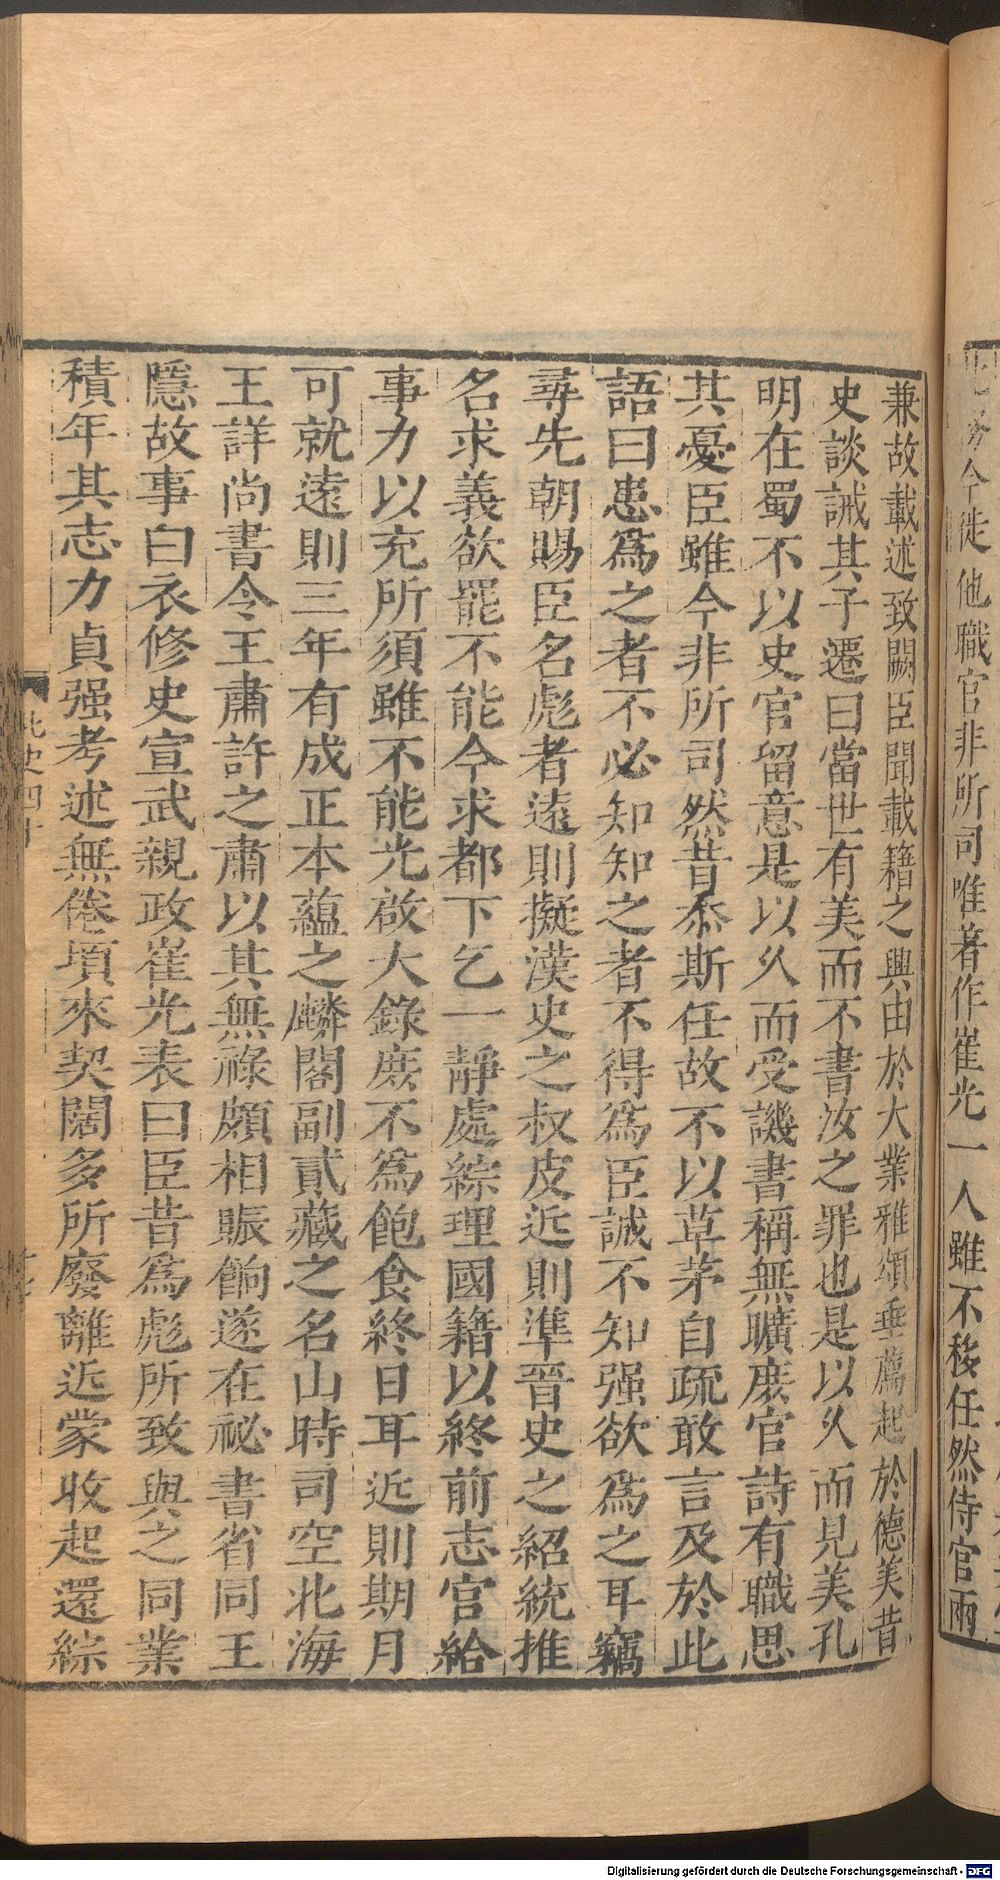 今徙他職官非所司唯著作崔光一人雖不移任然侍官兩
兼故載述致闕臣聞載籍之興由於大業雅頌垂薦起於德美昔
史談誡其子遷曰當世有美而不書汝之罪也是以久而見美孔
明在蜀不以史官留意是以久而受譏書稱無曠庶官詩有職思
其憂臣雖今非所司然昔忝斯任故不以草茅自疏敢言及於此
語曰患爲之者不必知知之者不得爲臣誠不知强欲爲之耳竊
尋先朝賜臣名彪者遠則擬漢史之叔皮近則準晉史之紹統推
名求義欲罷不能今求都下乞一靜處綜理國籍以終前志官給
事力以充所須雖不能光啟大錄庶不爲飽食終日耳近則期月
可就遠則三年有成正本蘊之麟閣副貳藏之名山時司空北海
王詳尚書令王肅許之肅以其無祿頗相賑餉遂在祕書省同王
隱故事白衣修史宣武親政崔光表曰臣昔爲彪所致與之同業
積年其志力貞强考述無倦頃來契闊多所廢離近蒙收起還綜
北史四十
Digitalisierung gefördert durch die Deutsche Forschungsgemeinschaft - DFG